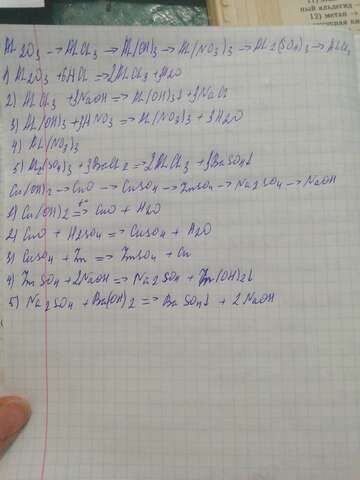 ный альдегид
12) метан →
Al2O3 → AlCl3 → Al(OH)3 → Al(NO3)3 → Al2(SO4)3 → AlCl3
1) Al2O3 + 6HCl => 2AlCl3 + H2O
2) AlCl3 + 3NaOH => Al(OH)3↓ + 3NaCl
3) Al(OH)3 + 3HNO3 => Al(NO3)3 + 3H2O
4) Al(NO3)3
5) Al2(SO4)3 + 3BaCl2 => 2AlCl3 + 3BaSO4↓
Cu(OH)2 → CuO → CuSO4 → ZnSO4 → Na2SO4 → NaOH
1) Cu(OH)2 => CuO + H2O
2) CuO + H2SO4 => CuSO4 + H2O
3) CuSO4 + Zn => ZnSO4 + Cu
4) ZnSO4 + 2NaOH => Na2SO4 + Zn(OH)2↓
5) Na2SO4 + Ba(OH)2 => BaSO4↓ + 2NaOH